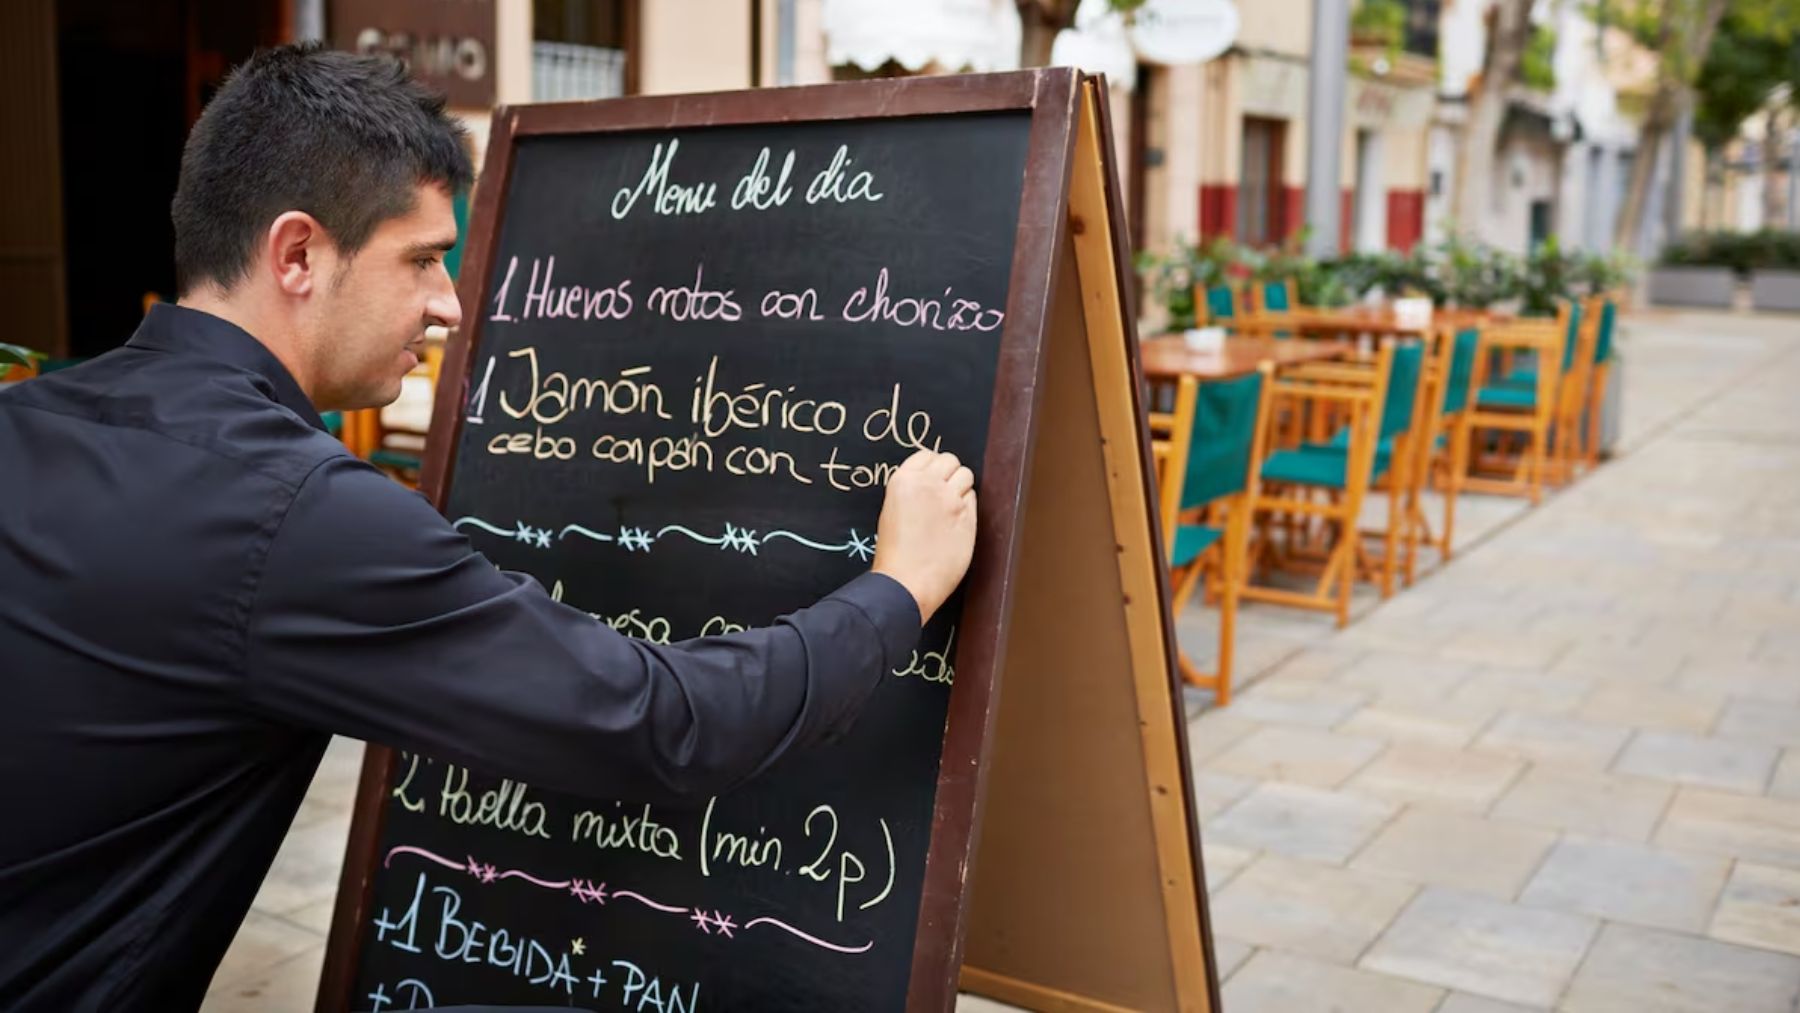 Menu del dia
1. Huevos rotos con chorizo
1 Jamón ibérico de
cebo con pan con tom
2. Paella mixta (min. 2p)
+1 BEBIDA* + PAN